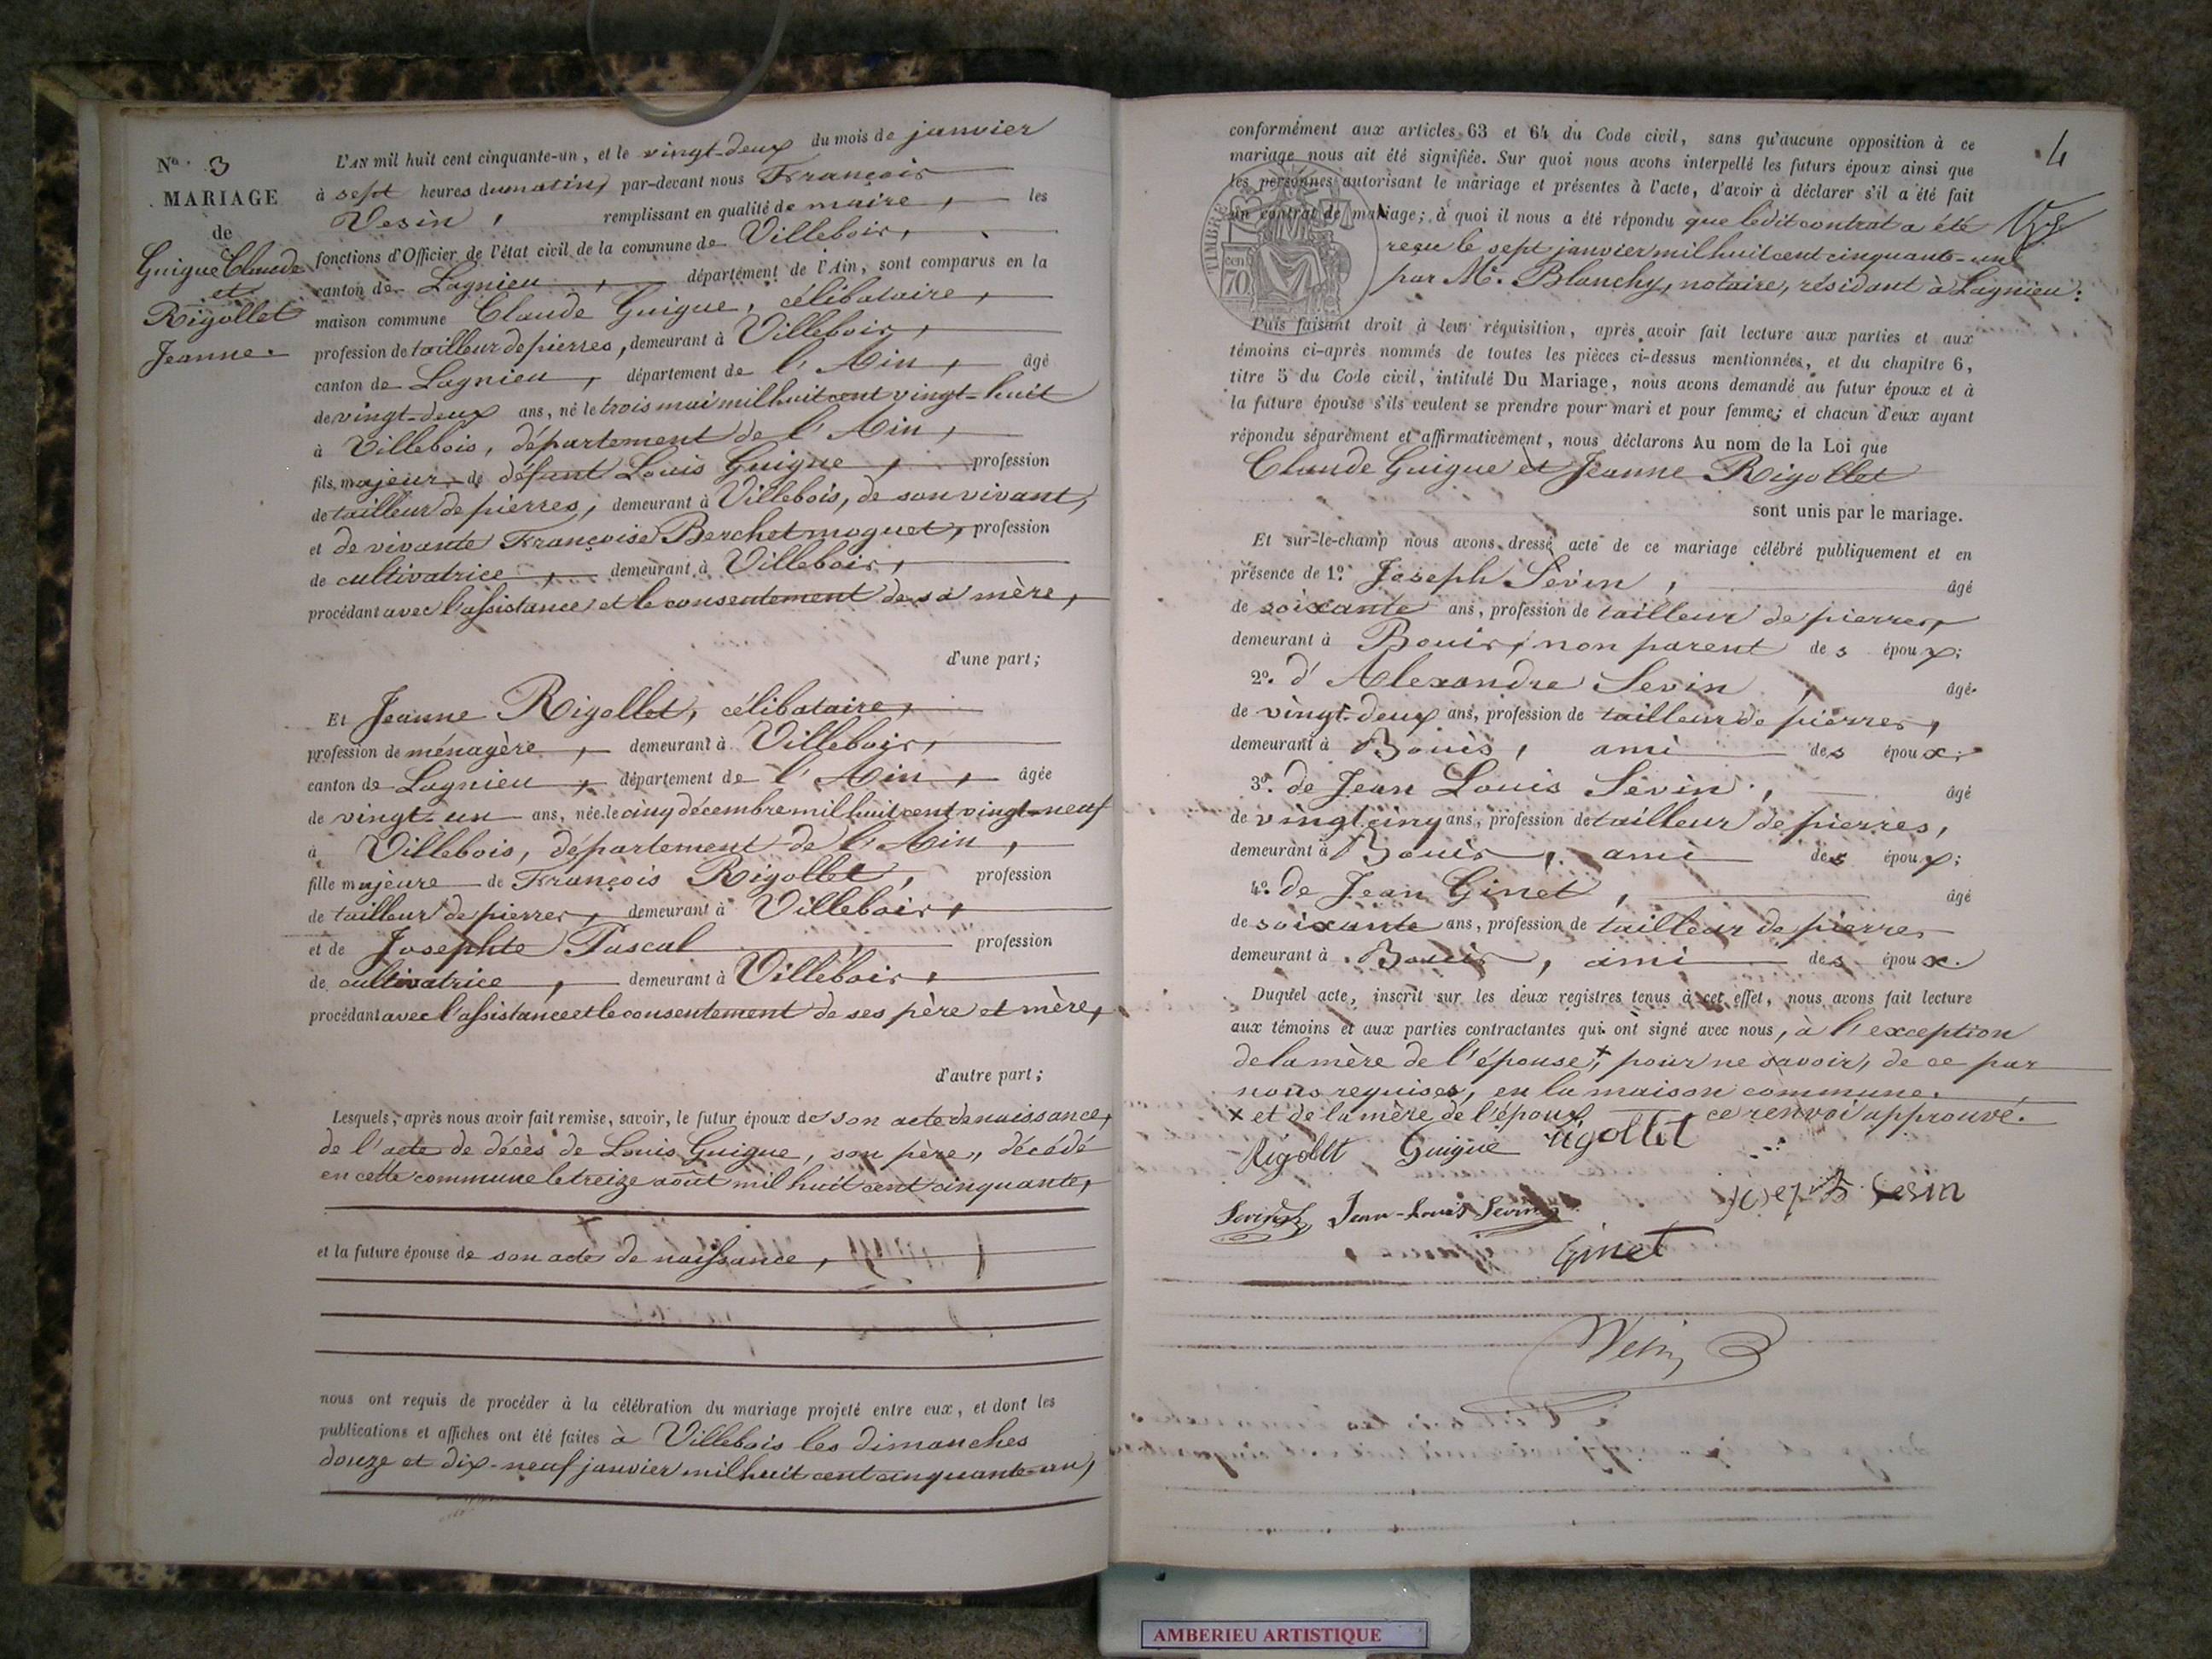 N° 3
MARIAGE
de
Guigue Claude
et
Rigollet
Jeanne.
L'AN mil huit cent cinquante-un, et le vingt-deux du mois de janvier
à sept heures du matin, par-devant nous François
Vesin, remplissant en qualité de maire, les
fonctions d'Officier de l'état civil de la commune de Villebois,
canton de Lagnieu, département de l'Ain, sont comparus en la
maison commune Claude Guigue, célibataire,
profession de tailleur de pierres, demeurant à Villebois,
canton de Lagnieu, département de l'Ain, âgé
de vingt-deux ans, né le trois mai mil huit cent vingt-huit
à Villebois, département de l'Ain,
fils majeur de défunt Louis Guigue, profession
de tailleur de pierres, demeurant à Villebois, de son vivant,
et de vivante Françoise Berchet moguet, profession
de cultivatrice, demeurant à Villebois,
procédant avec l'assistance et le consentement de sa mère,
d'une part;
Et Jeanne Rigollet, célibataire,
profession de ménagère, demeurant à Villebois,
canton de Lagnieu, département de l'Ain, âgée
de vingt-un ans, née le cinq décembre mil huit cent vingt-neuf
à Villebois, département de l'Ain,
fille majeure de François Rigollet, profession
de tailleur de pierres, demeurant à Villebois,
et de Josephte Pascal profession
de cultivatrice, demeurant à Villebois,
procédant avec l'assistance et le consentement de ses père et mère,
d'autre part;
Lesquels, après nous avoir fait remise, savoir, le futur époux de son acte de naissance,
de l'acte de décès de Louis Guigue, son père, décédé
en cette commune le treize août mil huit cent cinquante,
et la future épouse de son acte de naissance,
nous ont requis de procéder à la célébration du mariage projeté entre eux, et dont les
publications et affiches ont été faites à Villebois les dimanches
douze et dix-neuf janvier mil huit cent cinquante-un,
4
conformément aux articles 63 et 64 du Code civil, sans qu'aucune opposition à ce
mariage nous ait été signifiée. Sur quoi nous avons interpellé les futurs époux ainsi que
les personnes autorisant le mariage et présentes à l'acte, d'avoir à déclarer s'il a été fait
un contrat de mariage; à quoi il nous a été répondu que ledit contrat a été
reçu le sept janvier mil huit cent cinquante-un
par Me. Blanchy, notaire, résidant à Lagnieu:
TIMBRE
cen
70
Puis faisant droit à leur réquisition, après avoir fait lecture aux parties et aux
témoins ci-après nommés de toutes les pièces ci-dessus mentionnées, et du chapitre 6,
titre 5 du Code civil, intitulé Du Mariage, nous avons demandé au futur époux et à
la future épouse s'ils veulent se prendre pour mari et pour femme; et chacun d'eux ayant
répondu séparément et affirmativement, nous déclarons Au nom de la Loi que
Claude Guigue et Jeanne Rigollet
sont unis par le mariage.
Et sur-le-champ nous avons dressé acte de ce mariage célébré publiquement et en
présence de 1° Joseph Sevin, âgé
de soixante ans, profession de tailleur de pierres,
demeurant à Bouis, non parent des époux;
2°. d'Alexandre Sevin, âgé
de vingt-deux ans, profession de tailleur de pierres,
demeurant à Bouis, ami des époux;
3°. de Jean Louis Sevin, âgé
de vingt cinq ans, profession de tailleur de pierres,
demeurant à Bouis, ami des époux;
4°. de Jean Ginet, âgé
de soixante ans, profession de tailleur de pierres
demeurant à Bouis, ami des époux.
Duquel acte, inscrit sur les deux registres tenus à cet effet, nous avons fait lecture
aux témoins et aux parties contractantes qui ont signé avec nous, à l'exception
de la mère de l'épouse, + pour ne savoir, de ce par
nous requises, en la maison commune.
+ et de la mère de l'époux ce renvoi approuvé.
Rigollt Guigue rigollet
Sevin Jean-Louis Sevin joseph Sevin
Ginet
Vesin
AMBERIEU ARTISTIQUE